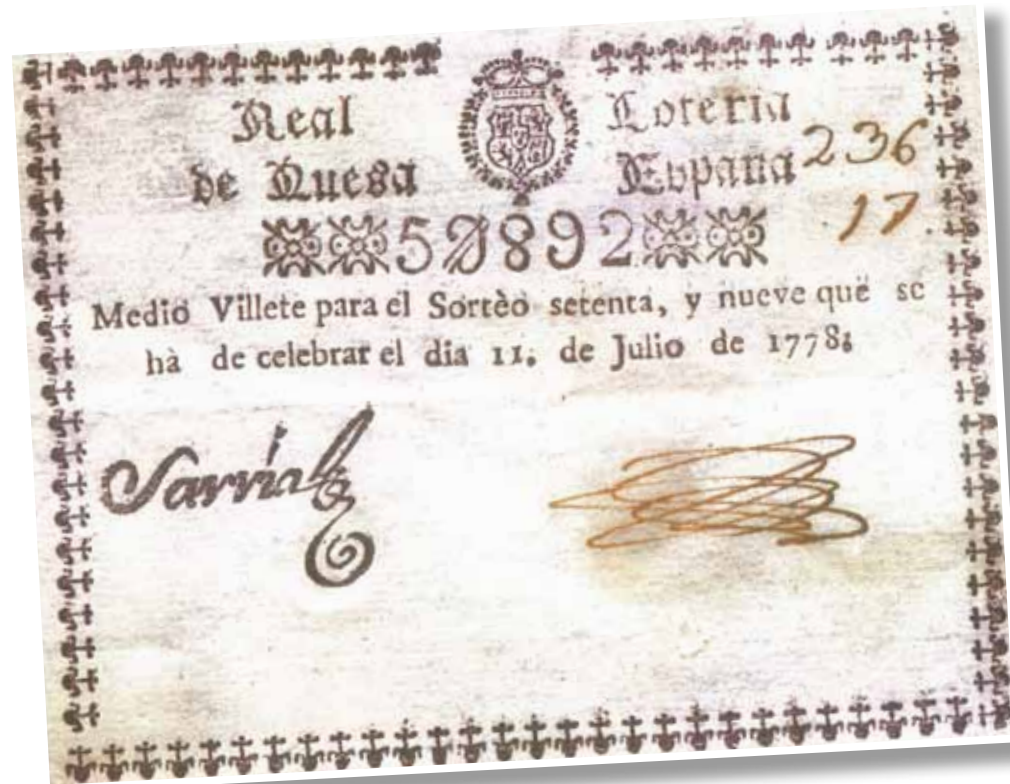 Real Loteria 236
de Nueba España 17
50892
Medio Villete para el Sortèo setenta, y nueve que se
hà de celebrar el dia 11. de Julio de 1778;
Sarria